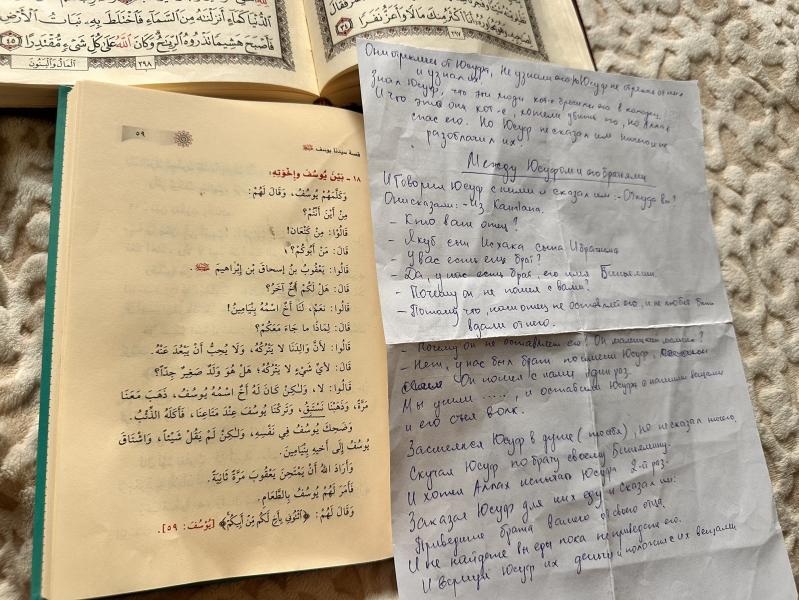 الدُّنْيَا كَمَاءٍ أَنْزَلْنَاهُ مِنَ السَّمَاءِ فَاخْتَلَطَ بِهِ نَبَاتُ الْأَرْضِ
فَأَصْبَحَ هَشِيمًا تَذْرُوهُ الرِّيَاحُ وَكَانَ اللَّهُ عَلَىٰ كُلِّ شَيْءٍ مُقْتَدِرًا ٤٥
٢٩٨
الْمَالُ وَالْبَنُونَ
أَنَا أَكْثَرُ مِنْكَ مَالًا وَأَعَزُّ نَفَرًا ٣٤
٢٩٧
٥٩
قصة سيدنا يوسف ﷺ
١٨ - بَيْنَ يُوسُفَ وَإِخْوَتِهِ:
وَكَلَّمَهُمْ يُوسُفُ، وَقَالَ لَهُمْ:
مِنْ أَيْنَ أَنْتُمْ؟
قَالُوا: مِنْ كَنْعَانَ!
قَالَ: مَنْ أَبُوكُمْ؟
قَالُوا: يَعْقُوبُ بْنُ إِسحاقَ بْنِ إِبْرَاهِيمَ ﷺ.
قَالَ: هَلْ لَكُمْ أَخٌ آخَرُ؟
قَالُوا: نَعَمْ، لَنَا أَخٌ اسْمُهُ بِنْيَامِينُ!
قَالَ: لِمَاذَا مَا جَاءَ مَعَكُمْ؟
قَالُوا: لأَنَّ وَالِدَنَا لَا يَتْرُكُهُ، وَلَا يُحِبُّ أَنْ يَبْعُدَ عَنْهُ.
قَالَ: لأَيِّ شَيْءٍ لَا يَتْرُكُهُ؛ هَلْ هُوَ وَلَدٌ صَغِيرٌ جِدّاً؟
قَالُوا: لا، وَلَـٰكِنْ كَانَ لَهُ أَخٌ اسْمُهُ يُوسُفُ، ذَهَبَ مَعَنَا
مَرَّةً، وَذَهَبْنَا نَسْتَبِقُ، وَتَرَكْنَا يُوسُفَ عِنْدَ مَتَاعِنَا، فَأَكَلَهُ الذِّئْبُ.
وَضَحِكَ يُوسُفُ فِي نَفْسِهِ، وَلَـٰكِنْ لَمْ يَقُلْ شَيْئاً، وَاشْتَاقَ
يُوسُفُ إِلَى أَخِيهِ بِنْيَامِينَ.
وَأَرَادَ اللهُ أَنْ يَمْتَحِنَ يَعْقُوبَ مَرَّةً ثَانِيَةً.
فَأَمَرَ لَهُمْ يُوسُفُ بِالطَّعَامِ.
وَقَالَ لَهُمْ: ﴿ٱئْتُونِي بِأَخٍ لَكُمْ مِنْ أَبِيكُمْ﴾ [يُوسُفُ: ٥٩].
от Юсуфа, не узнали его, но Юсуф не
и узнал их
Знал Юсуф, что эти люди кот-е бросили его в колодец
И что это они кот-е, хотели убить его, но Аллах
спас его. Но Юсуф не сказал им ничего и не
разоблачил их.
Между Юсуфом и его братьями
И Говорил Юсуф с ними и сказал им: - Откуда вы?
Они сказали: - из Канʼана.
- Кто ваш отец?
- Якуб сын Исхака сына Ибрахима
- У вас есть ещё брат?
- Да, у нас есть брат, его имя Биньямин.
- Почему он не пошел с вами?
- Потому что, наш отец не оставляет его, и не любит быть
вдали от него.
- Почему он не оставляет его? Он маленький мальчик?
- Нет, у нас был брат по имени Юсуф,
Он пошел с нами один раз.
Мы ушли ....., и оставили Юсуфа с нашими вещами
и его съел волк.
Засмеялся Юсуф в душе (про себя), но не сказал ничего.
Скучал Юсуф по брату своему Биньямину.
И хотел Аллах испытать Юсуфа 2-й раз.
Заказал Юсуф для них еду и сказал им:
Приведите брата вашего от своего отца.
И не найдете вы еды пока не приведете его.
И вернул Юсуф их деньги и положил с их вещами